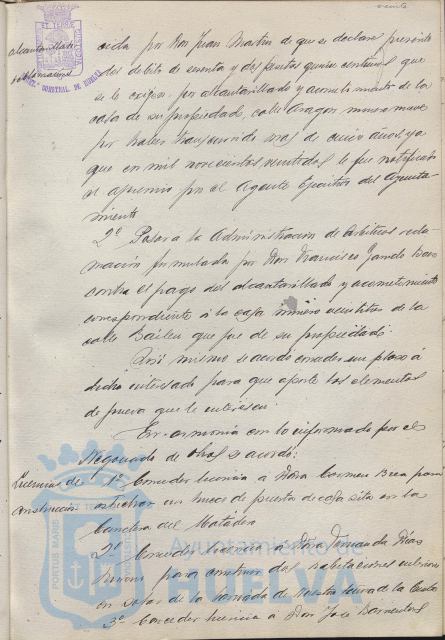 cida por Don Juan Martin de que se declare prescrito
el debito de senta y dos pesetas quince centimos que
se le exigen por alcantarillado y acometimiento de la
casa de su propiedad, calle Aragon numero nueve
por haber transcurrido mas de cinco años, ya
que en mil novecientos veintidos le fue notificado
el apremio por el Agente Ejecutivo del Ayunta-
miento
2º Pasar a la Administracion de Arbitrios recla-
macion formulada por Don Francisco
contra el pago del alcantarillado y acometimiento
correspondiente á la casa número veintitres de la
calle Bailen que fue de su propiedad.
Asi mismo se acordo conceder un plazo á
dicho interesado para que aporte los elementos
de prueva que le interesen
En armonia con lo informado por el
Negociado de obras se acordo:
Licencias de
construccion
1º Conceder licencia a Doña Carmen Brea para
estrechar un hueco de puerta de casa sita en la
Cancera del Matadero
2º Conceder licencia á Doña Fernanda Dias
para construir dos habitaciones interiores
en solar de la de Nuestra Señora de la Cinta
3º Conceder licencia á Don Jose
Ayuntamiento de
HUELVA
PORTUS MARIS